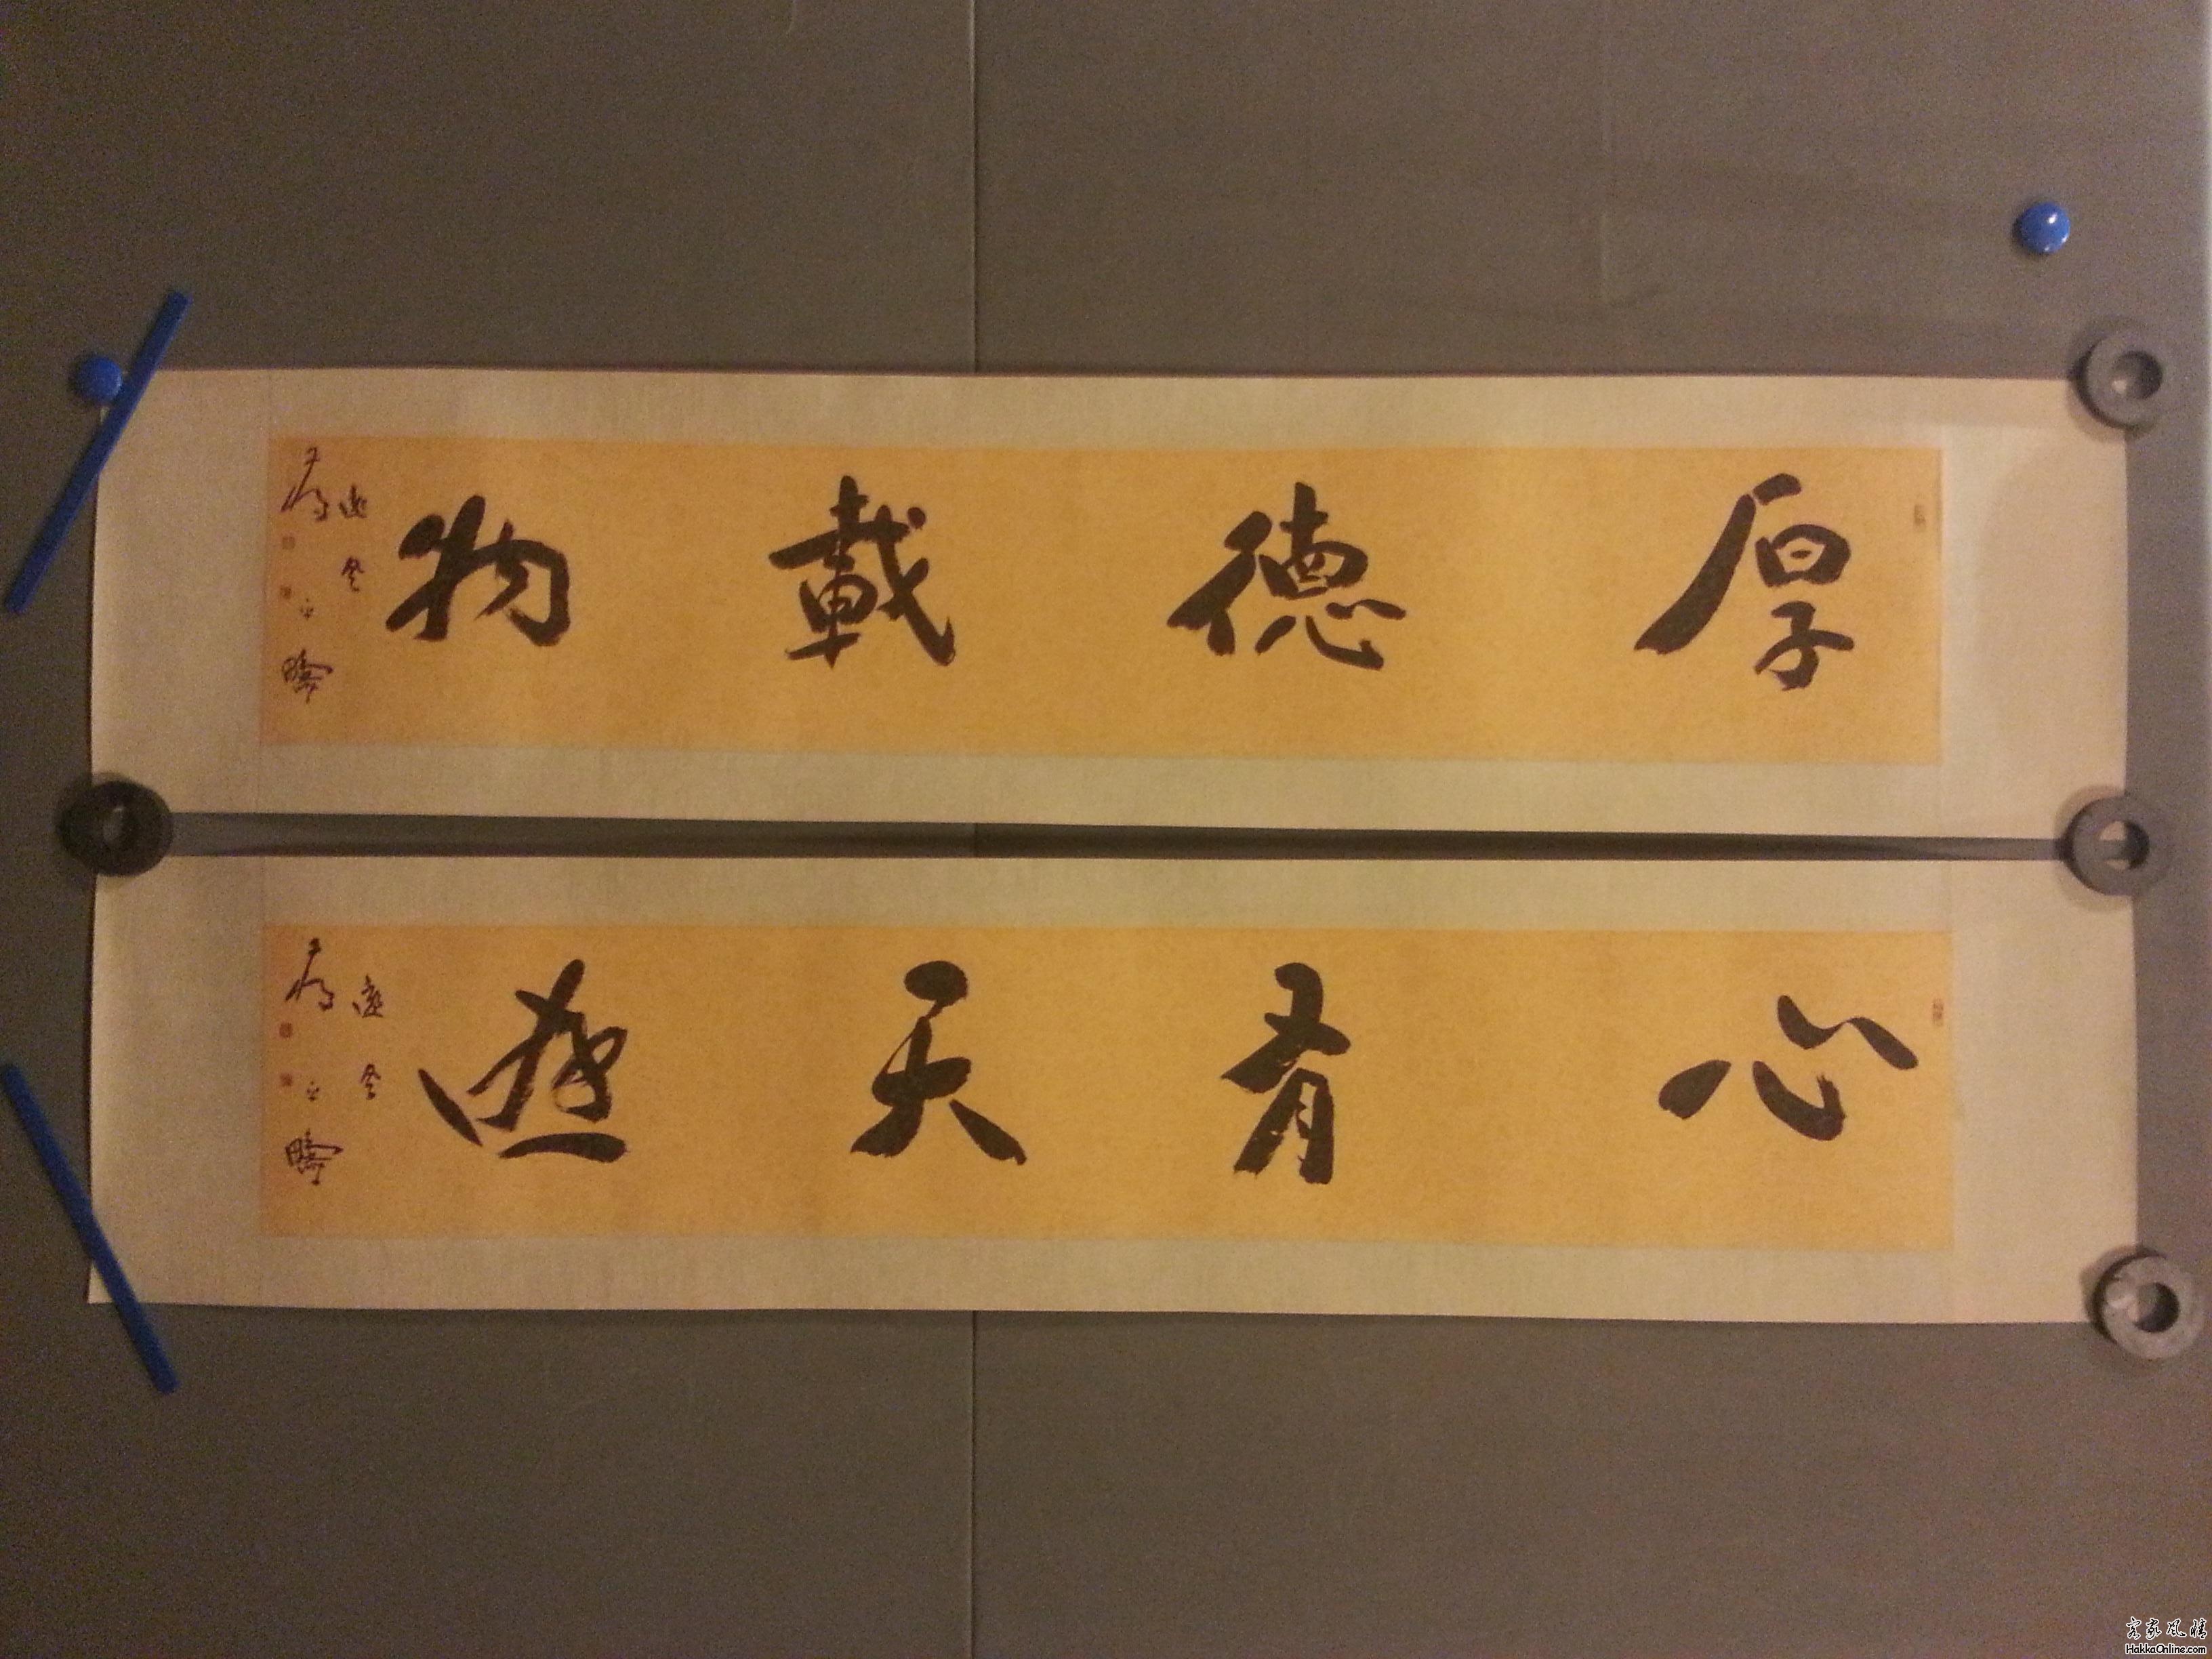 厚德載物
心有天遊
客家風情
HakkaOnline.com